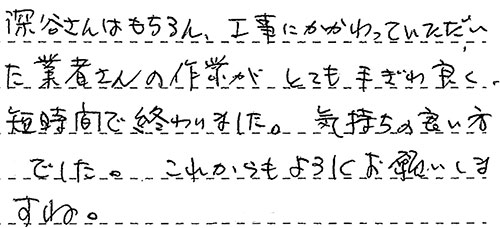 深谷さんはもちろん、工事にかかわっていただい
た業者さんの作業が とても手ぎわ良く、
短時間で終わりました。気持ちの良い方
でした。これからもよろしくお願いしま
すね。